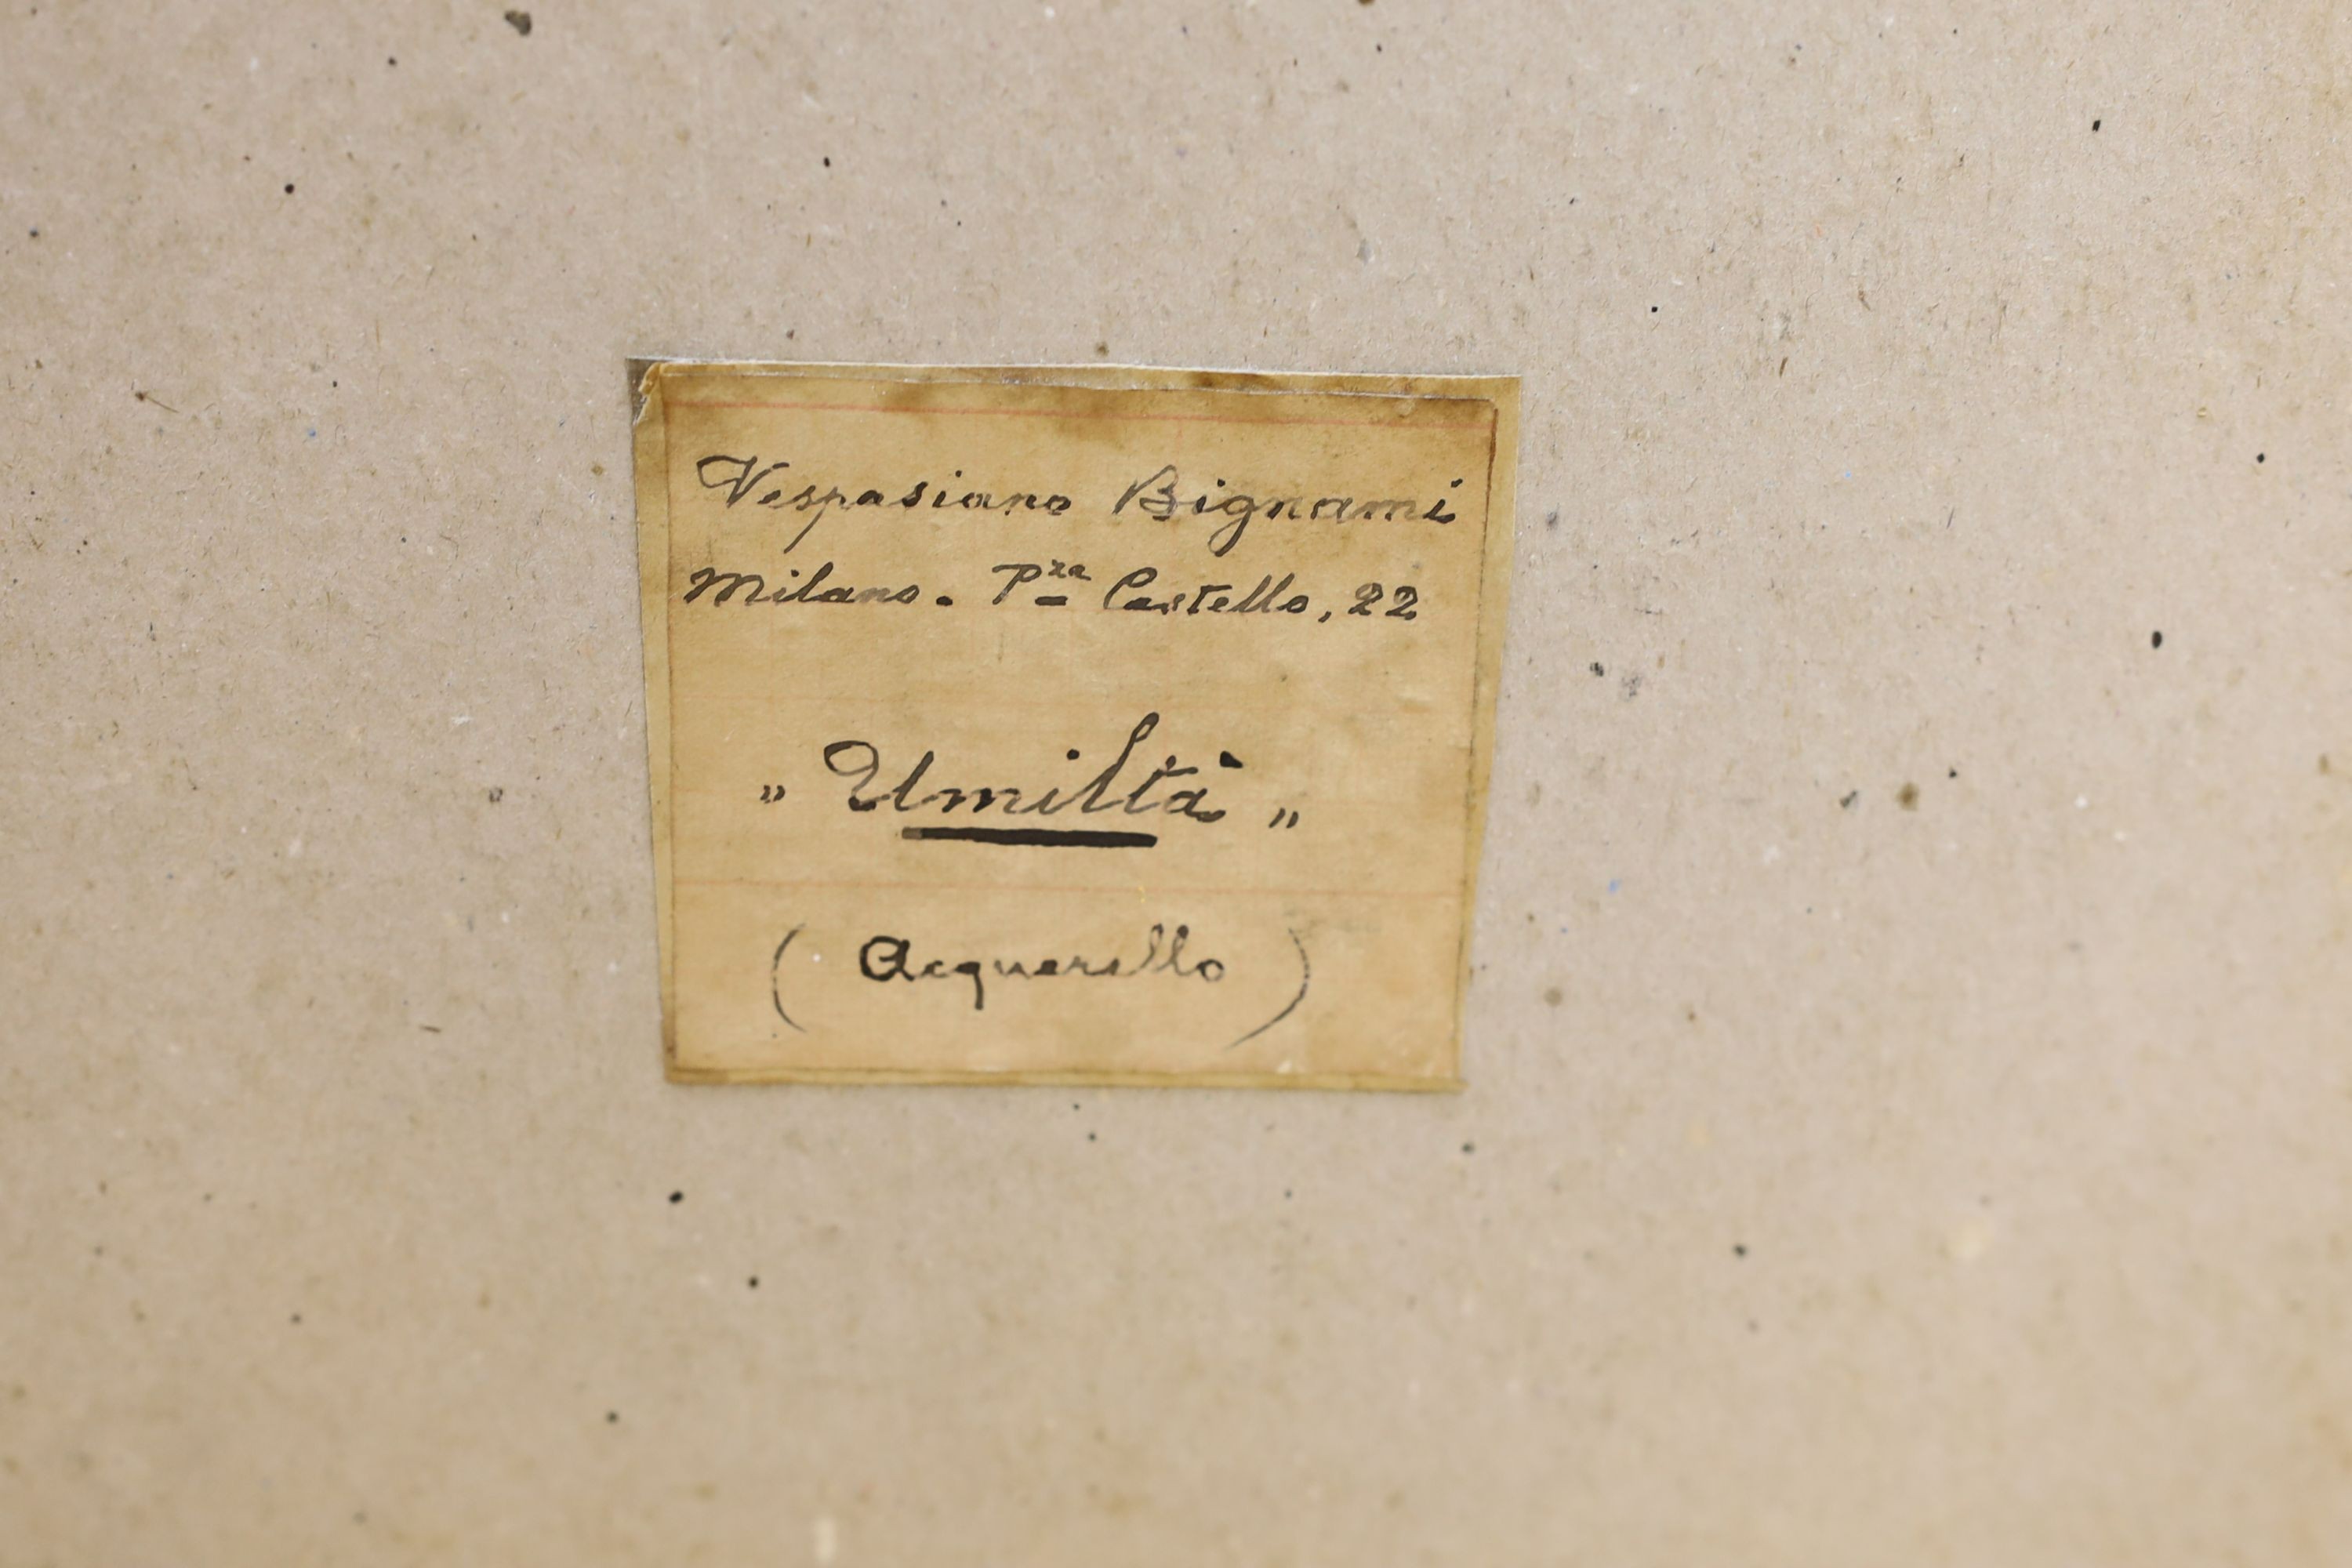 Vespasiano Bignami
Milano. Pza Castello, 22
„ Umiltà „
(Acquerello)